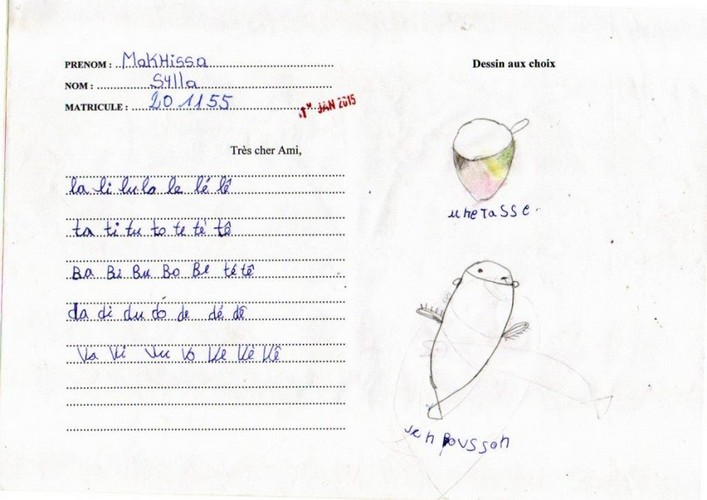 PRENOM : Makhissa
NOM : Sylla
MATRICULE : 201155
JAN 2015
Très cher Ami,
la li lu lo le lé lê
ta ti tu to te té tê
Ba Bi Bu Bo Be té tê
da di du do de dé dê
Va Vi Vu Vo Ve Vé Vê
Dessin aux choix
une tasse
uen poussoh